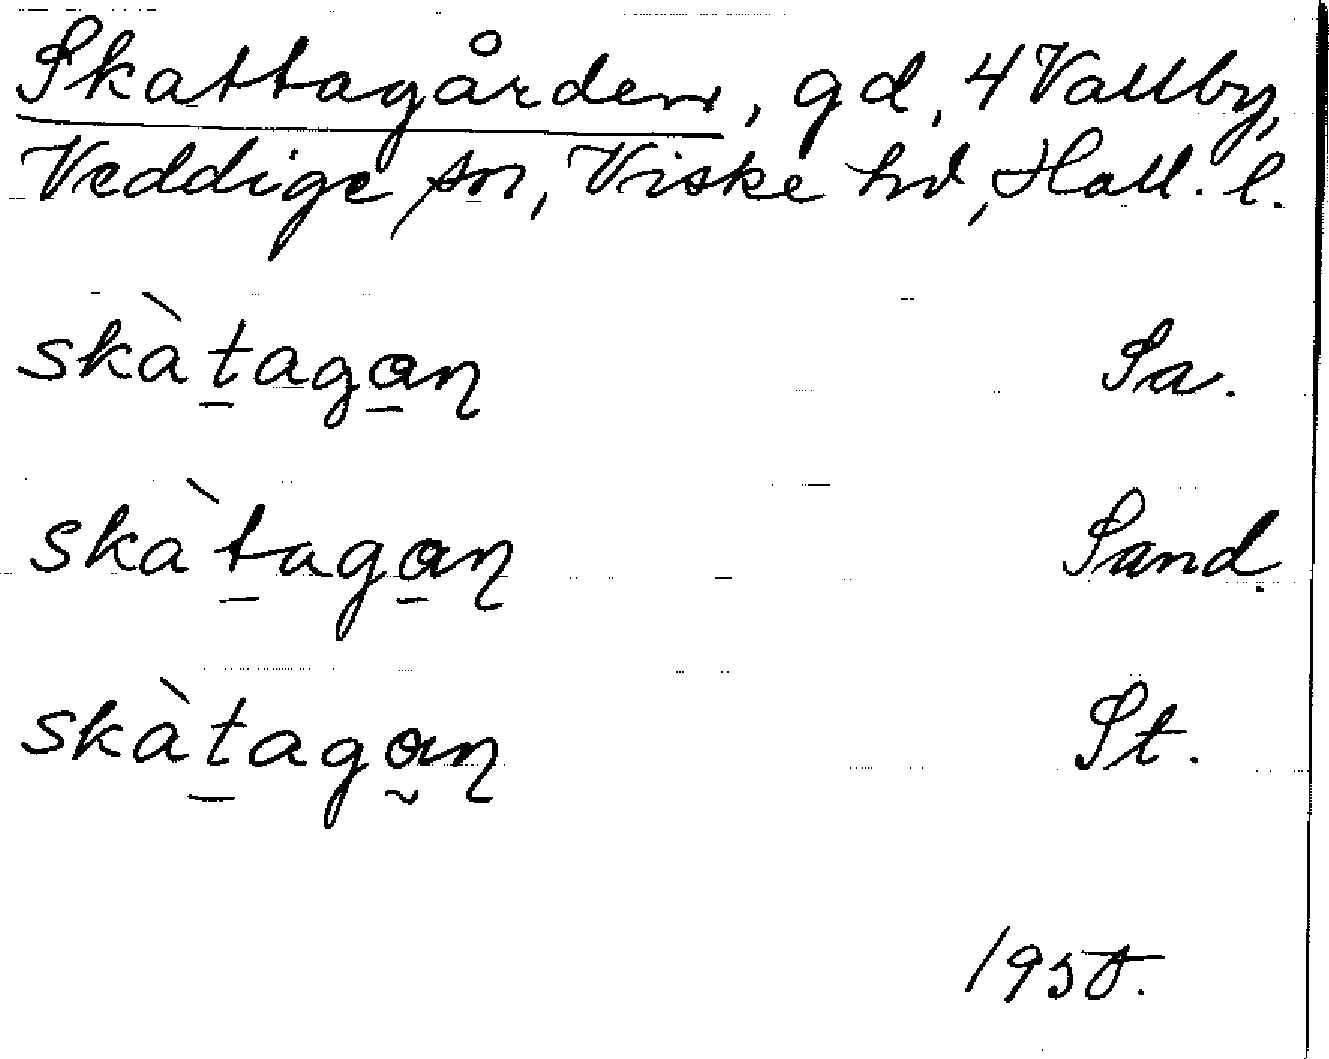 Skattagården, gd, 4 Vallby,
Veddige sn, Viske hd, Hall. l.
skàt̠aga̠n̡ Sa.
skàt̠aga̠n̡ Sand.
skàt̠aga̰n̡ St.
1950.